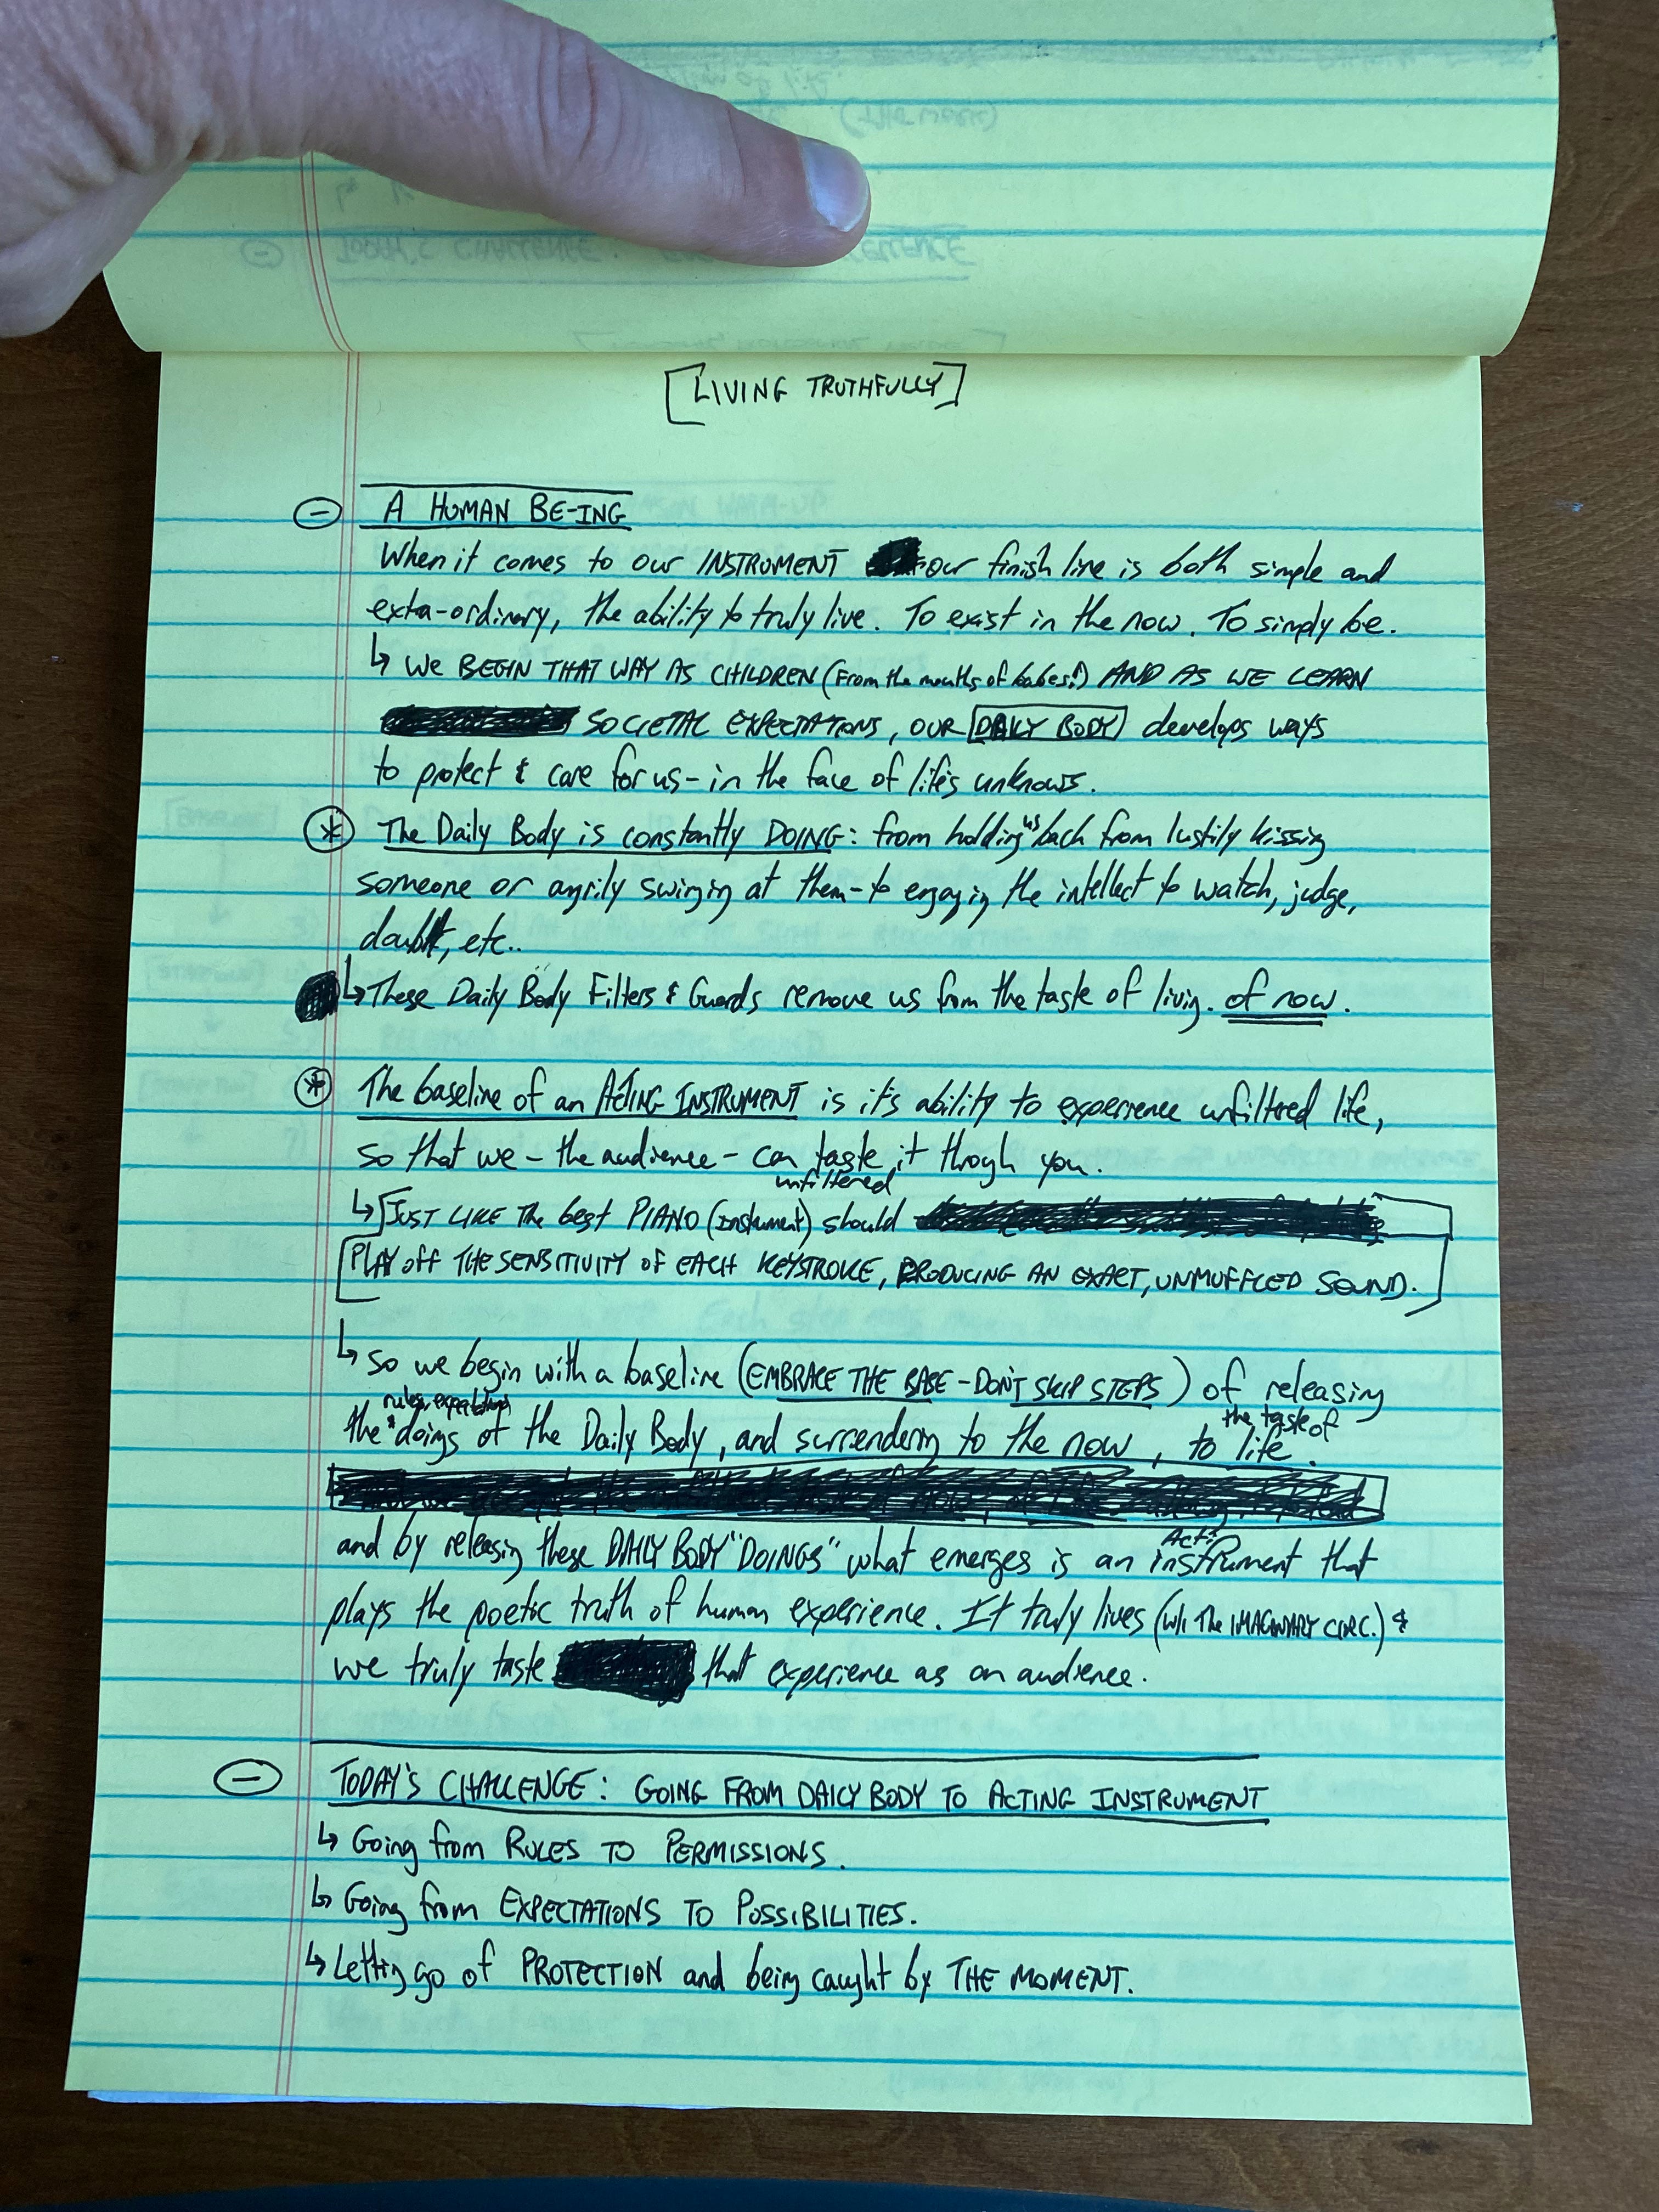 [LIVING TRUTHFULLY]
A HUMAN BE-ING
When it comes to our INSTRUMENT our finish line is both simple and
exta-ordinary, the ability to truly live. To exist in the now. To simply be.
↳ WE BEGIN THAT WAY AS CHILDREN (From the mouths of babes!) AND AS WE LEARN
SOCIETAL EXPECTATIONS, OUR [DAILY BODY] develops ways
to protect & care for us - in the face of life's unknows.
* The Daily Body is constantly DOING: from holding us back from lustily kissing
someone or angrily swinging at them - to engaging the intellect to watch, judge,
doubt, etc..
↳ These Daily Body Filters & Guards remove us from the taste of living. of now.
* The baseline of an ACTING INSTRUMENT is it's ability to experience unfiltered life,
so that we - the audience - can taste it through you.
unfiltered
↳ [JUST LIKE THE best PIANO (instrument) should
PLAY off THE SENSITIVITY OF EACH KEYSTROKE, PRODUCING AN EXACT, UNMUFFLED SOUND.]
↳ so we begin with a baseline (EMBRACE THE BASE - DON'T SKIP STEPS) of releasing
rules, expectations
the taste of
the & doings of the Daily Body, and surrendering to the now, to life.
Acting
and by releasing these DAILY BODY "DOINGS" what emerges is an instrument that
plays the poetic truth of human experience. It truly lives (w/i The IMAGINARY CIRC.) &
we truly taste that experience as an audience.
TODAY'S CHALLENGE: GOING FROM DAILY BODY TO ACTING INSTRUMENT
↳ Going from RULES TO PERMISSIONS.
↳ Going from EXPECTATIONS TO POSSIBILITIES.
↳ Letting go of PROTECTION and being caught by THE MOMENT.